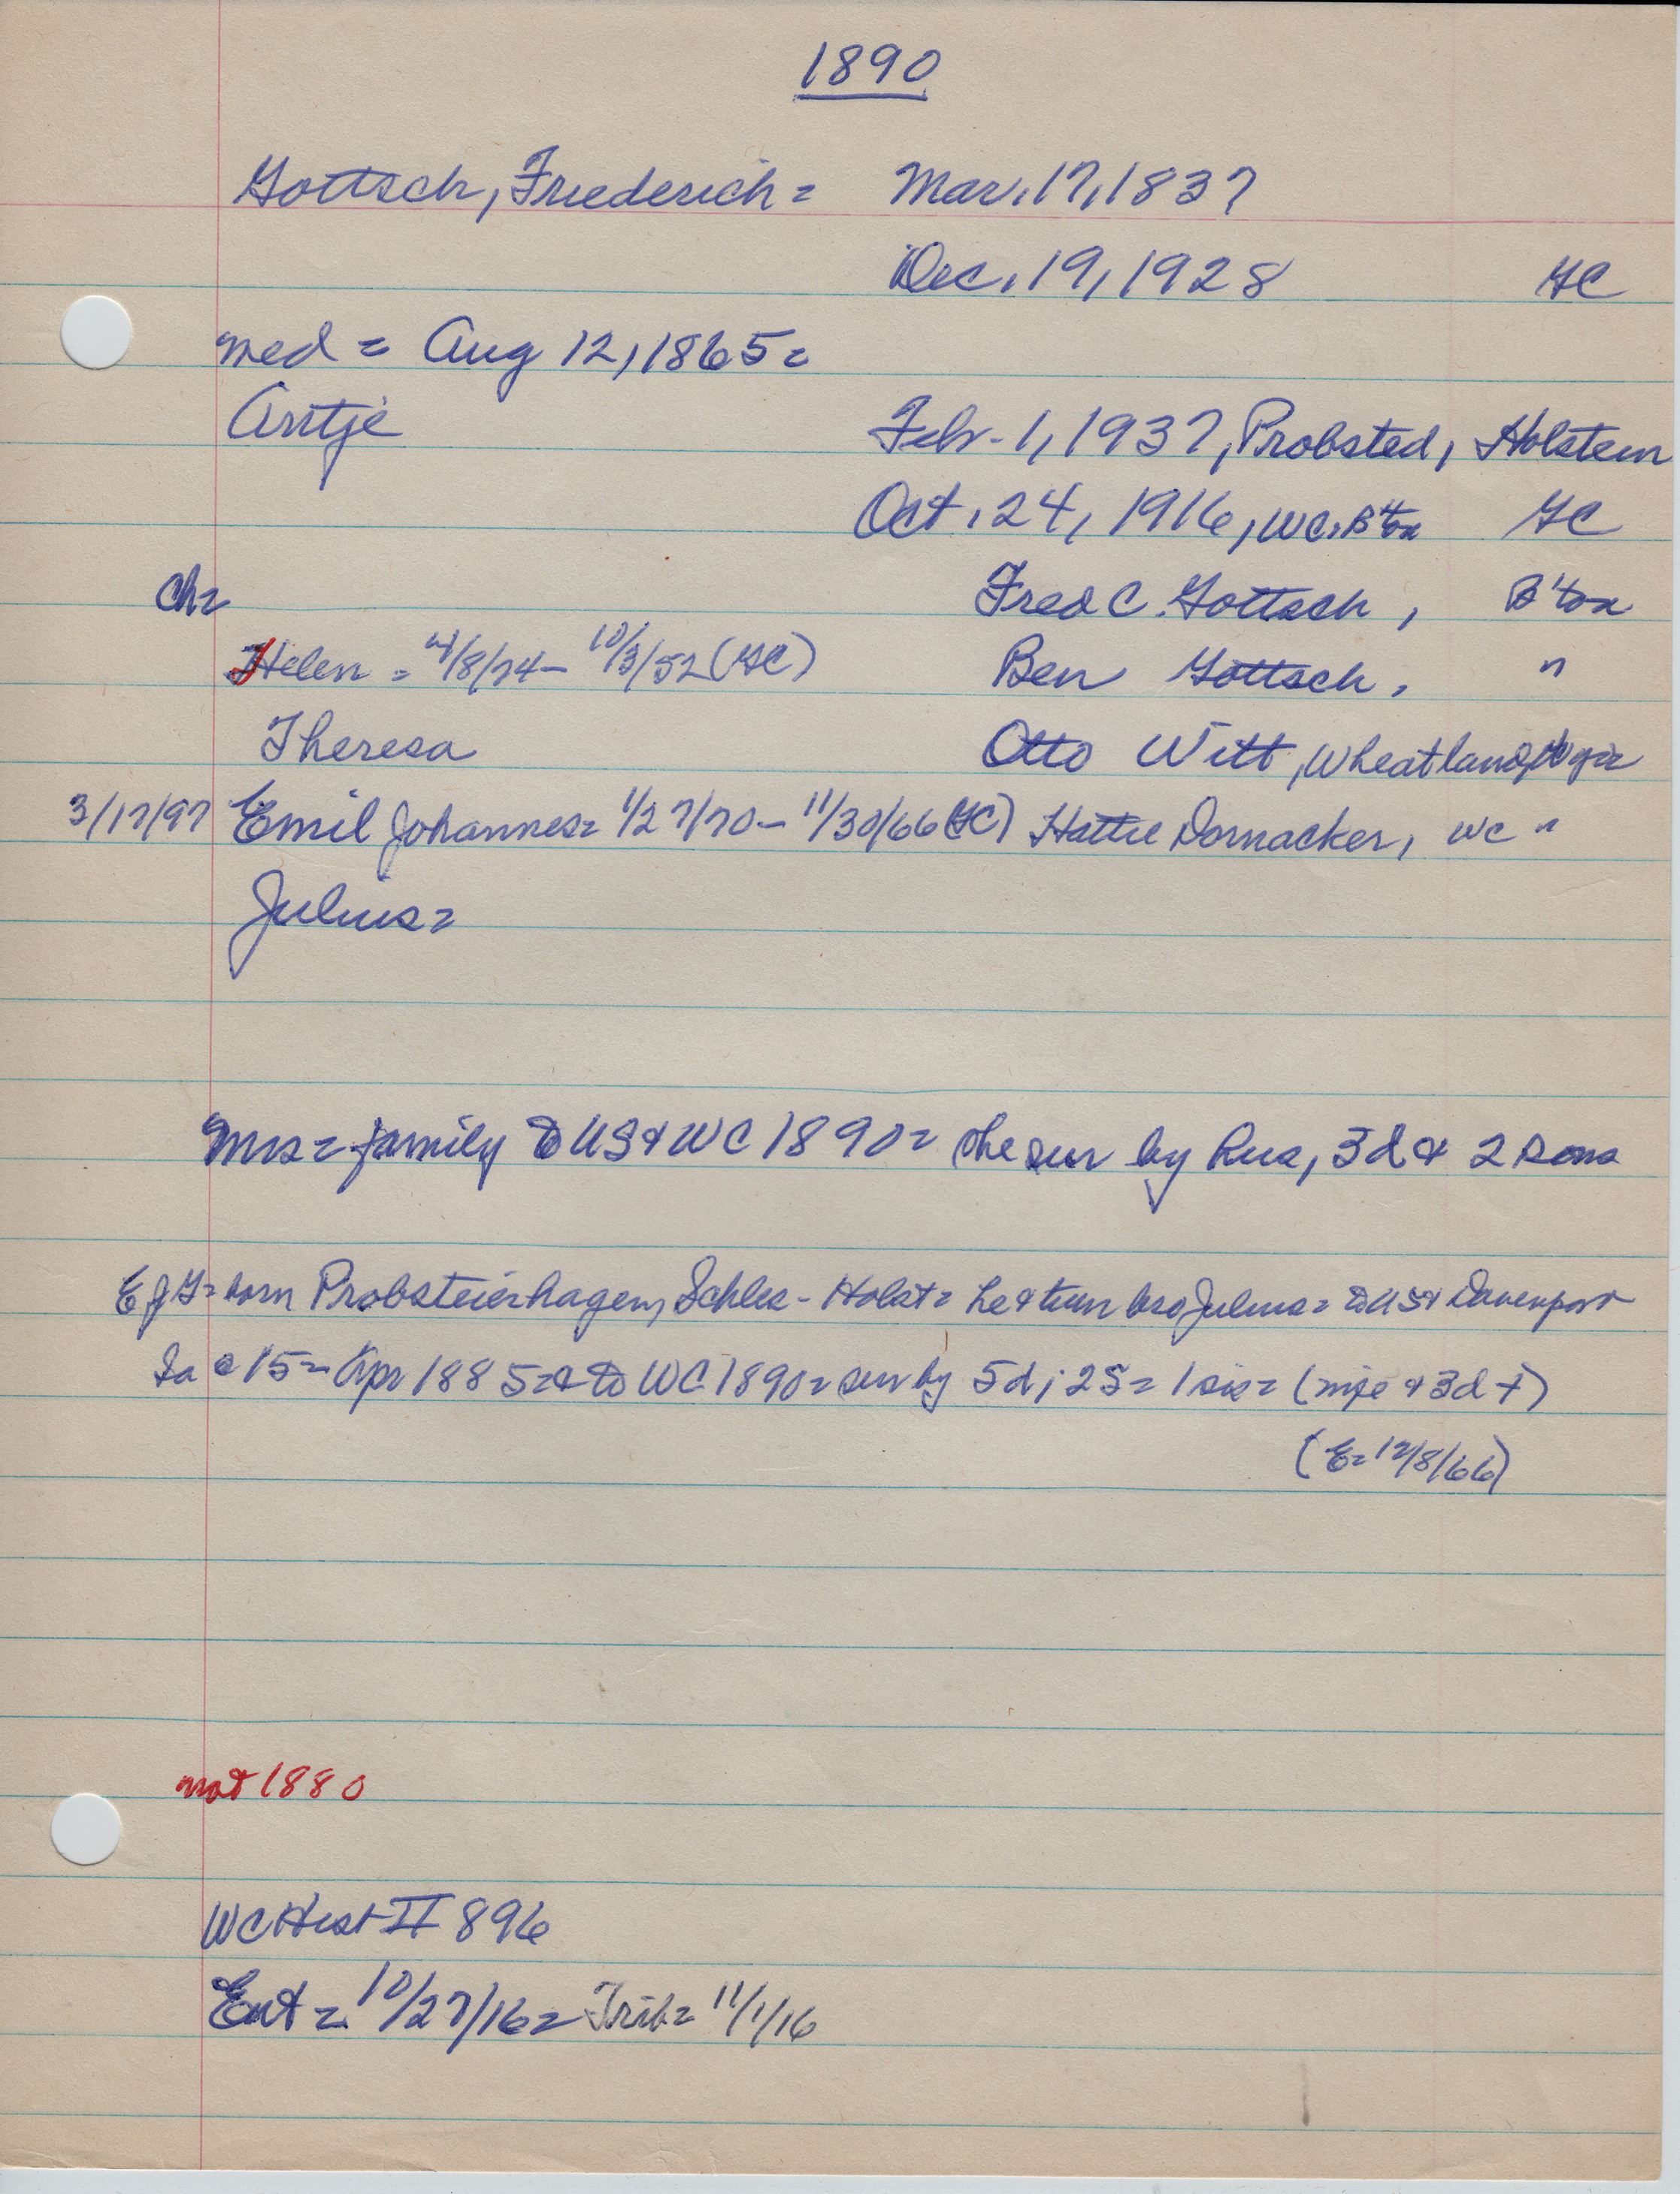 1890
Gottsch, Friederich = Mar. 17, 1837
Dec. 19, 1928 GC
med = Aug 12, 1865 =
Antje Feb. 1, 1937, Probsted, Holstein
Oct. 24, 1916, WC, B'ton GC
Ch =
Fred C. Gottsch, B'ton
Helen = 4/8/74 - 10/3/52 (GC) Ben Gottsch, "
Theresa Otto Witt, Wheatland,
3/17/97 Emil Johannes = 1/27/70 - 11/30/66 (GC) Hattie Dornacker, WC "
Julius =
Mrs = family to US & WC 1890 = she sur by hus, 3d & 2 sons
EJG = born Probsteierhagen, Schles - Holst = he & twin bro Julius = to US & Davenport
Ia @ 15 = Apr 1885 = & to WC 1890 = sur by 5d; 2S = 1 sis = (wife & 3d +)
(E = 12/8/66)
not 1880
WC Hist II 896
Ent = 10/27/16 = Trib = 11/1/16